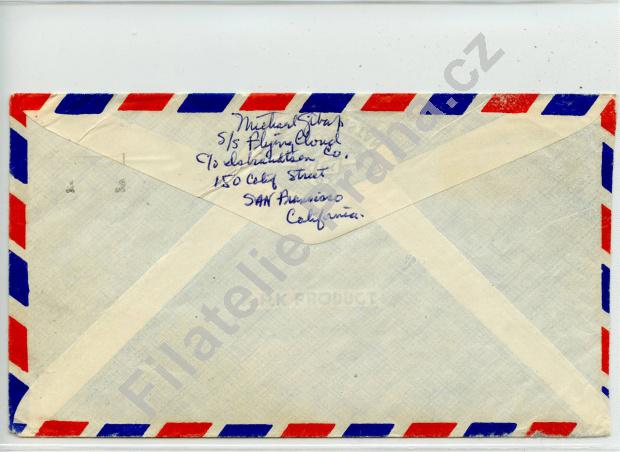 Michael Sibap
S/S Flying Cloud
C/o Isbrandtsen Co.
150 Calif Street
SAN Francisco
California.
MK PRODUCT
Filatelie-Praha.cz